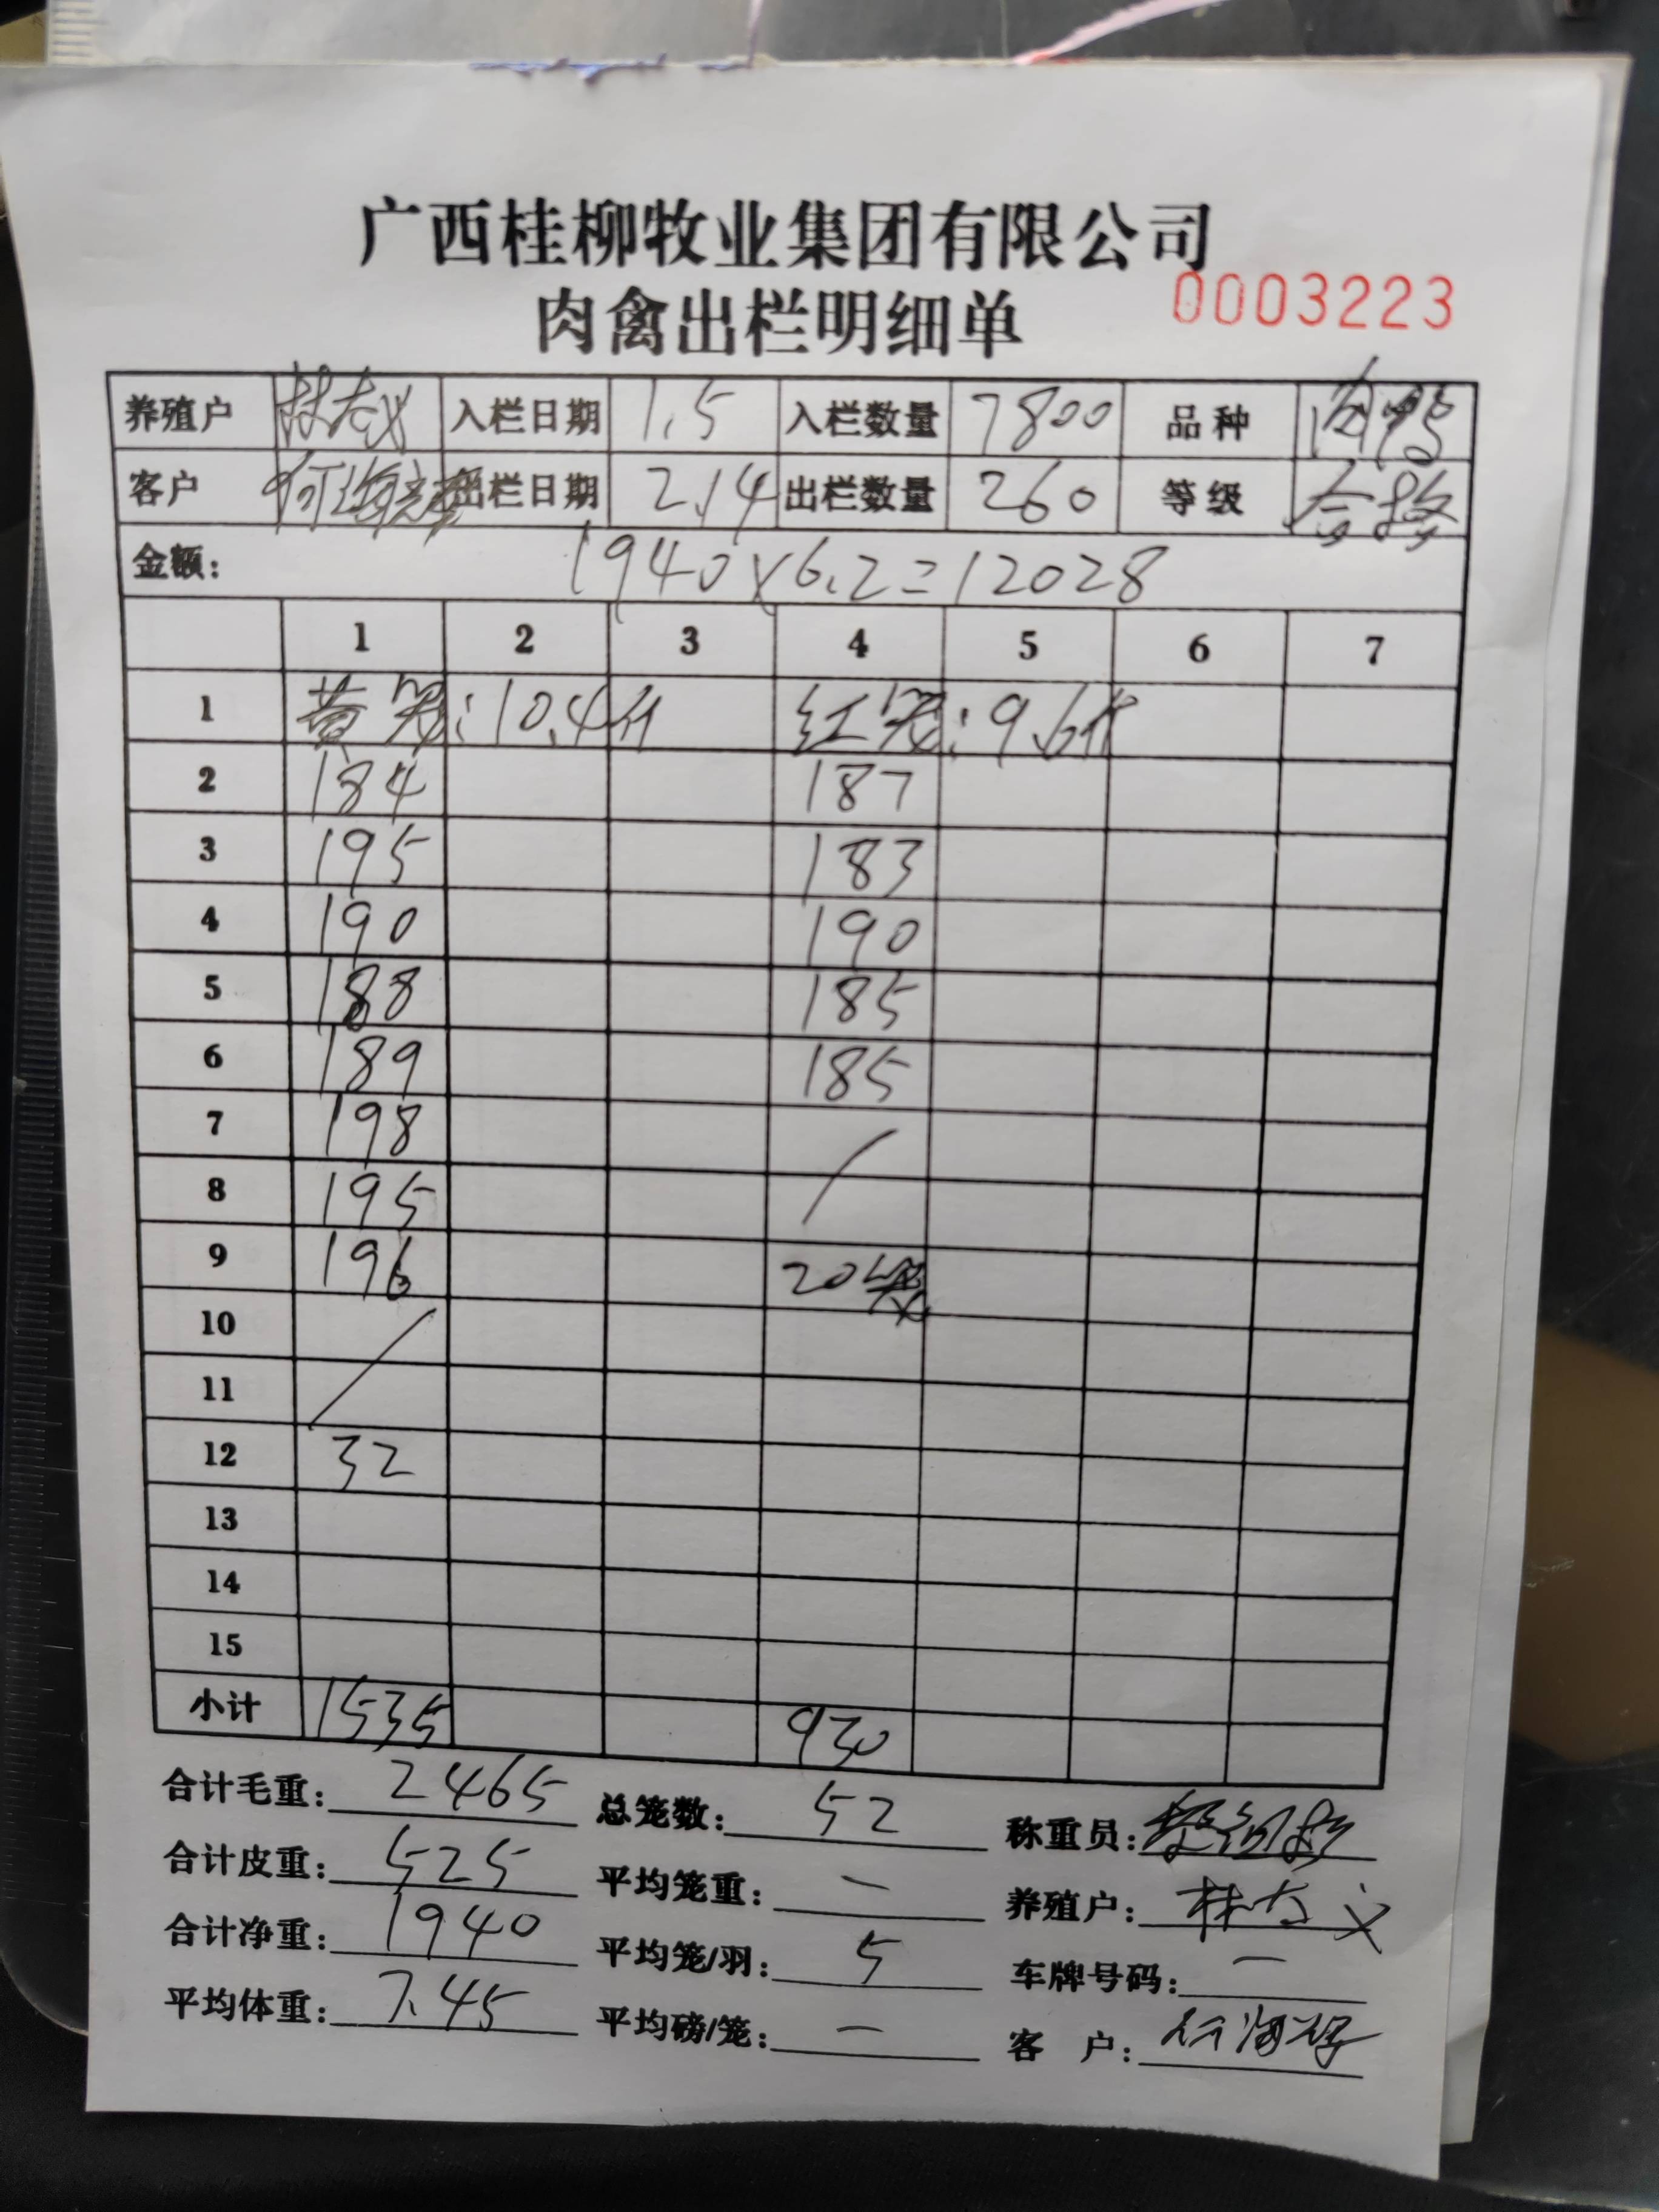 广西桂柳牧业集团有限公司
肉禽出栏明细单 0003223
养殖户 入栏日期 1.5 入栏数量 7800 品种 肉鸭
客户 出栏日期 2.14 出栏数量 260 等级 合格
金额: 1940×6.2=12028
1 2 3 4 5 6 7
1 黄笼:10.4斤 红笼:9.6斤
2 184 187
3 195 183
4 190 190
5 188 185
6 189 185
7 198
8 195
9 196 20笼
10
11
12 32
13
14
15
小计 1535 930
合计毛重: 2465 总笼数: 52 称重员:
合计皮重: 525 平均笼重: 一 养殖户:
合计净重: 1940 平均笼/羽: 5 车牌号码: 一
平均体重: 7.45 平均磅/笼: 一 客 户: